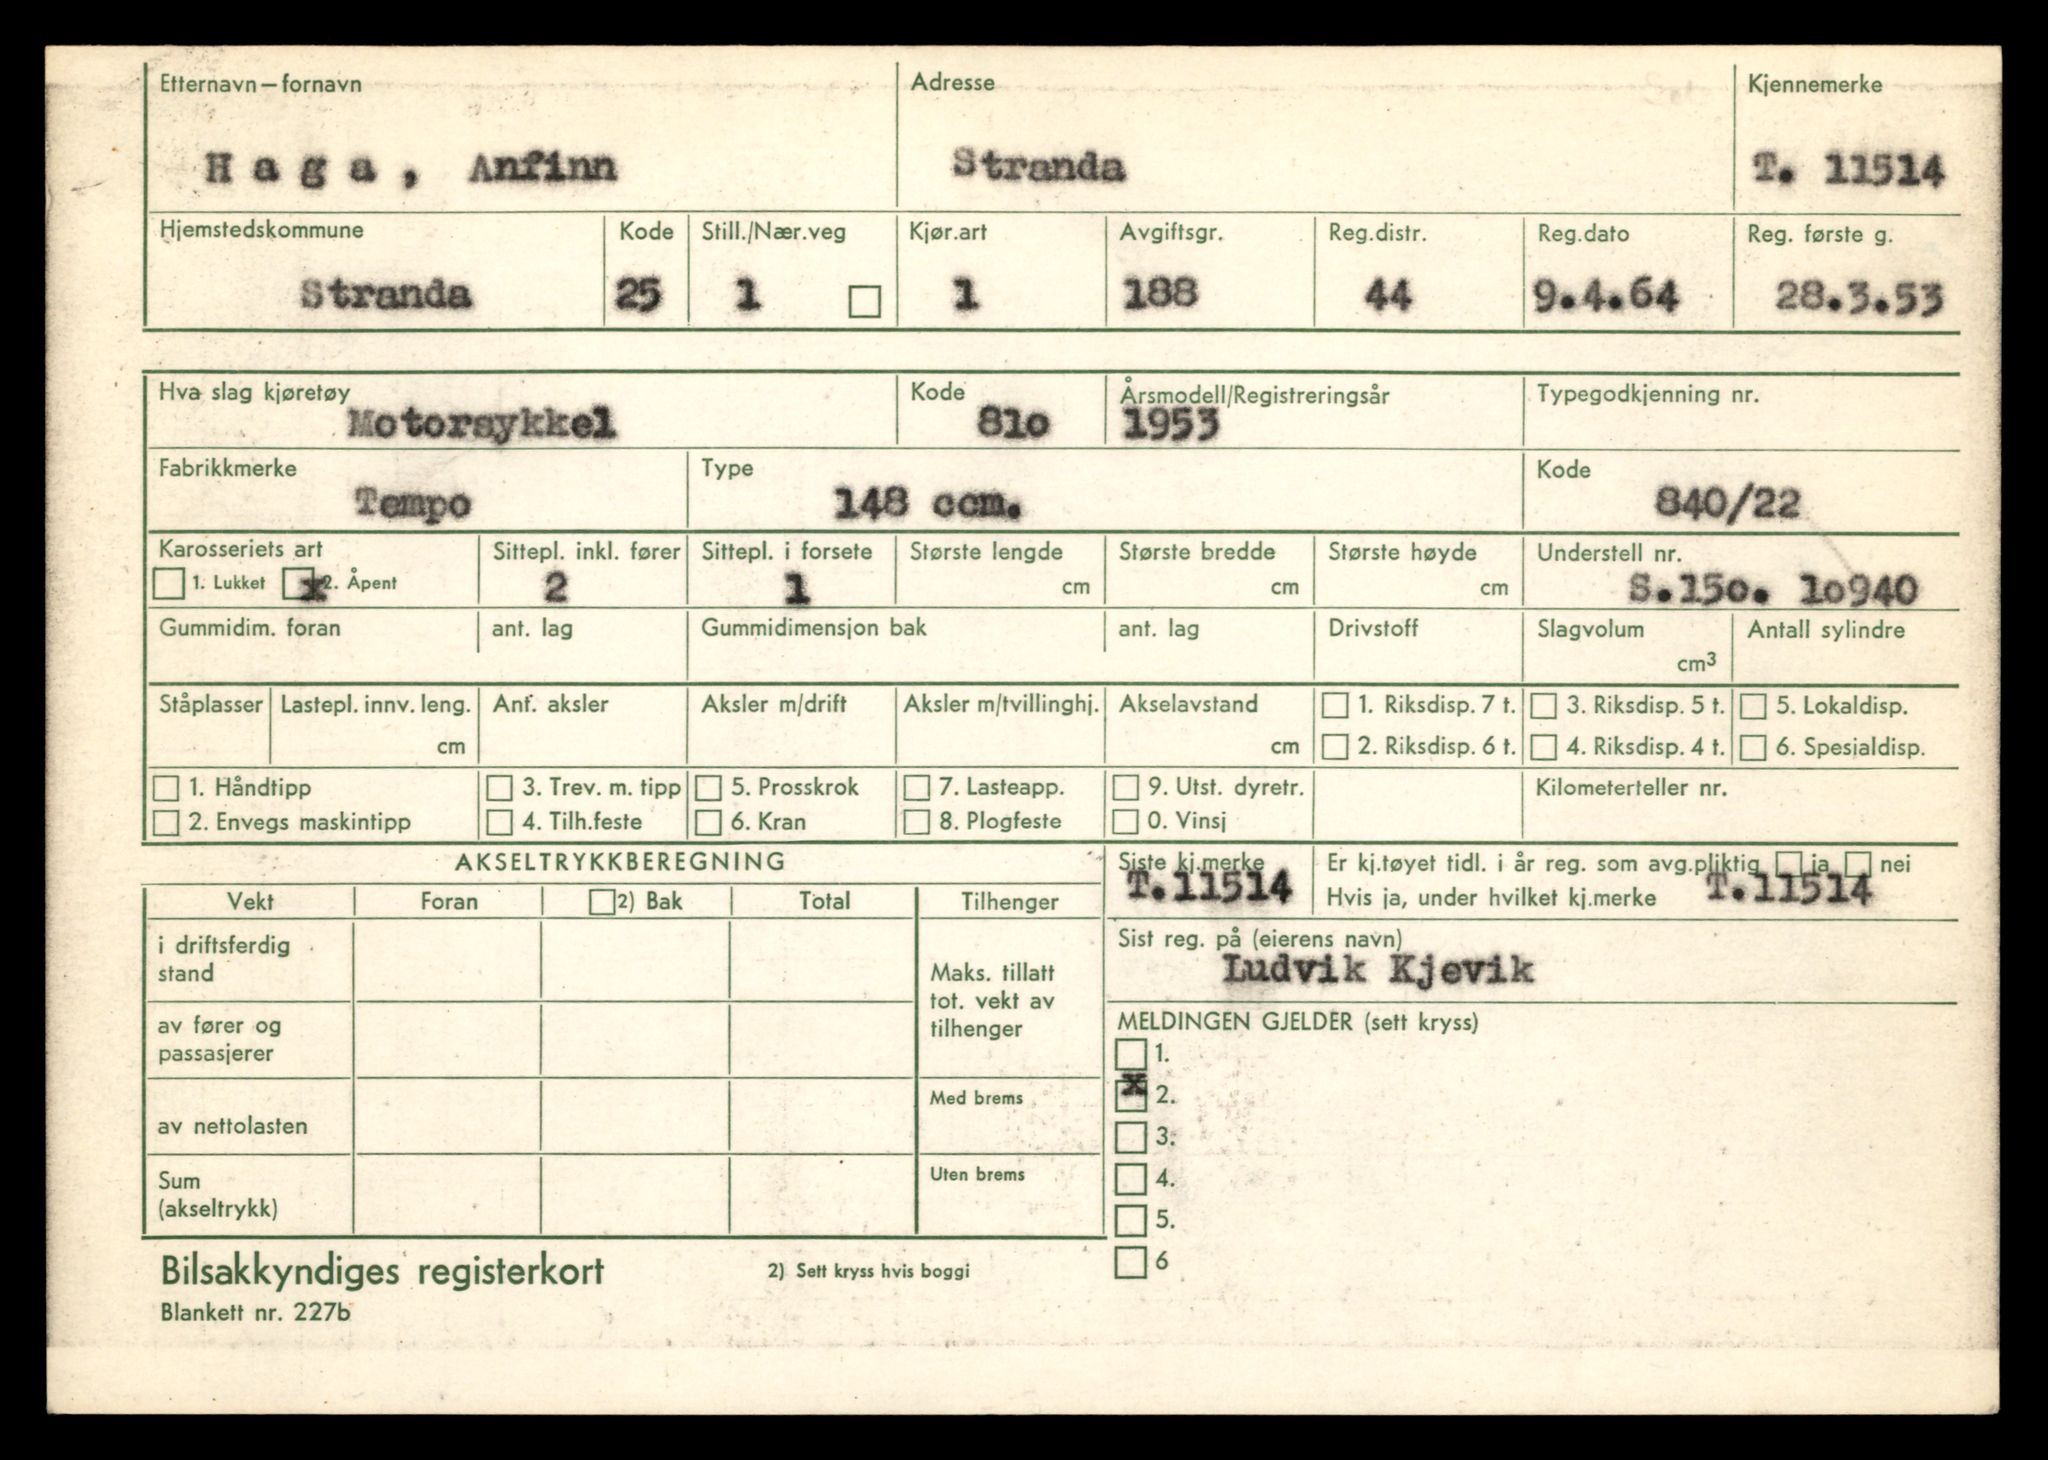 Etternavn–fornavn Adresse Kjennemerke
Haga, Anfinn Stranda T. 11514
Hjemstedskommune Kode Still./Nær.veg Kjør.art Avgiftsgr. Reg.distr. Reg.dato Reg. første g.
Stranda 25 1 1 188 44 9.4.64 28.3.53
Hva slag kjøretøy Kode Årsmodell/Registreringsår Typegodkjenning nr.
Motorsykkel 81o 1953
Fabrikkmerke Type Kode
Tempo 148 ccm. 840/22
Karosseriets art Sittepl. inkl. fører Sittepl. i forsete Største lengde Største bredde Største høyde Understell nr.
1. Lukket x 2. Åpent 2 1 cm cm cm S.15o. 1o940
Gummidim. foran ant. lag Gummidimensjon bak ant. lag Drivstoff Slagvolum Antall sylindre
cm3
Ståplasser Lastepl. innv. leng. Ant. aksler Aksler m/drift Aksler m/tvillinghj. Akselavstand 1. Riksdisp. 7 t. 3. Riksdisp. 5 t. 5. Lokaldisp.
cm cm 2. Riksdisp. 6 t. 4. Riksdisp. 4 t. 6. Spesialdisp.
1. Håndtipp 3. Trev. m. tipp 5. Prosskrok 7. Lasteapp. 9. Utst. dyretr. Kilometerteller nr.
2. Envegs maskintipp 4. Tilh.feste 6. Kran 8. Plogfeste 0. Vinsj
AKSELTRYKKBEREGNING Siste kj.merke Er kj.tøyet tidl. i år reg. som avg.pliktig ja nei
T.11514 Hvis ja, under hvilket kj.merke T.11514
Vekt Foran 2) Bak Total Tilhenger
Sist reg. på (eierens navn)
Ludvik Kjevik
i driftsferdig
stand
Maks. tillatt
tot. vekt av
tilhenger
av fører og
passasjerer
MELDINGEN GJELDER (sett kryss)
1.
x 2.
Med brems
av nettolasten
3.
4.
Uten brems
Sum
(akseltrykk)
5.
6
Bilsakkyndiges registerkort 2) Sett kryss hvis boggi
Blankett nr. 227b